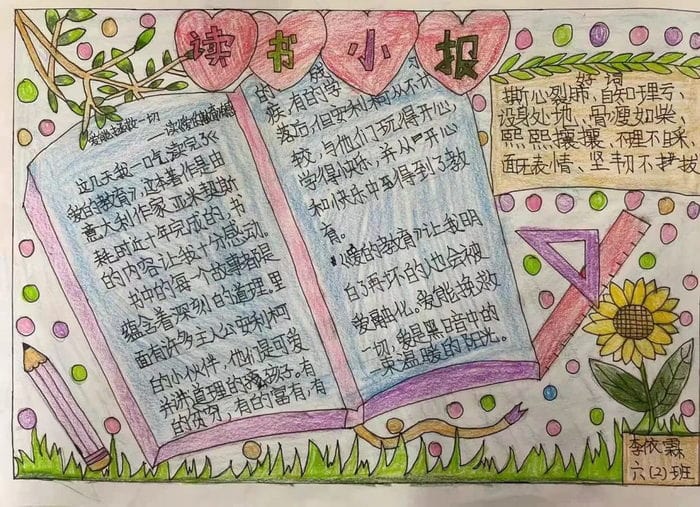 读书小报
爱能拯救一切
读《爱的教育》有感
这几天我一口气读完了
《爱的教育》,这本著作是由
意大利作家亚米契斯
耗时近十年完成的,书
的内容让我十分感动。
书中的每一个故事都是
蕴含着深刻的道理里
面有许多主人公安利柯
的小伙伴,他们是可爱
并讲道理的孩子。有
的贫穷,有的富有,有
的
疾,有的学
落后,但安利柯从不计
较,与他们玩得开心
学得快乐,并从"开心
和快乐中获得到了教
育。
《爱的教育》让我明
白了再坏的人也会被
爱融化。爱能挽救
一切,爱是黑暗中的
一束温暖的阳光。
好词
撕心裂肺、自知理亏、
设身处地、骨瘦如柴、
熙熙攘攘、不理不睬、
面无表情、坚韧不拔
李依霖
六(2)班